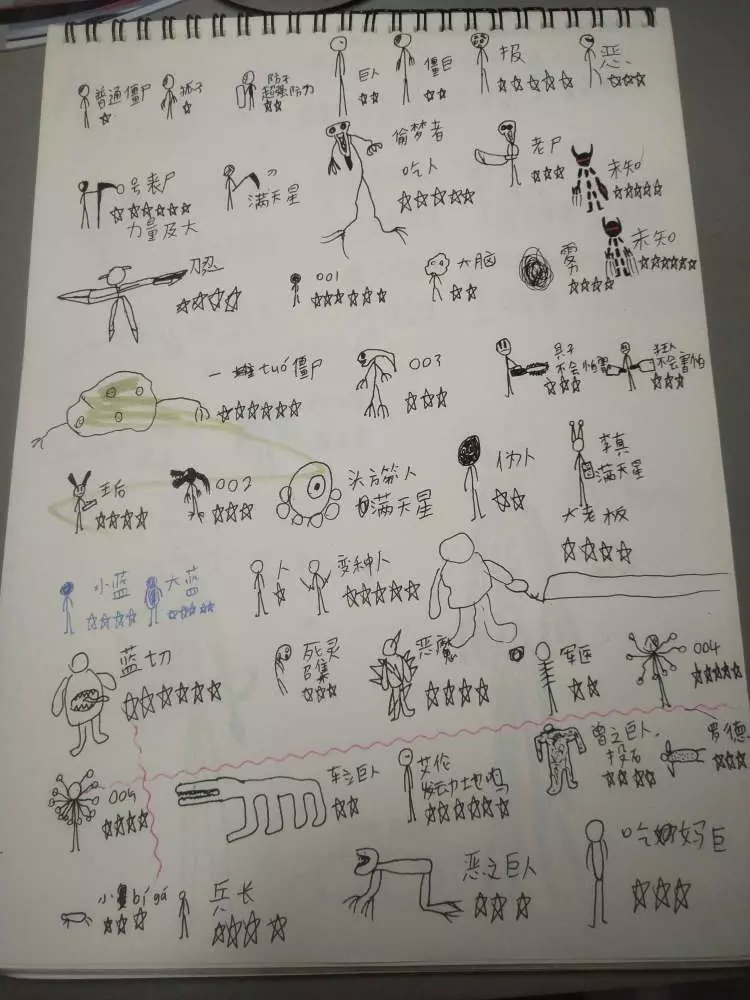 普通僵尸
☆
狐子
☆
防不
超强防力
☆☆
巨人
☆☆
僵巨
☆☆
报
☆☆☆☆☆
恶
☆☆☆
0号丧尸
☆☆☆☆☆☆
力量及大
刀
满天星
偷梦者
吃人
☆☆☆☆☆
老尸
☆☆☆
未知
☆☆☆☆☆
刀忍
☆☆☆☆
001
☆☆☆☆☆☆
大脑
☆☆
雾
☆☆☆☆
未知
☆☆☆☆☆☆
一 tuó僵尸
☆☆☆☆☆☆
003
☆☆☆
不会怕害
☆☆☆
狂人
不会害怕
☆☆☆
王后
☆☆☆☆
002
☆☆☆
满天星
伪人
☆☆
李真
满天星
大老板
☆☆☆☆
小蓝
☆☆☆☆
大蓝
☆☆☆☆☆
人
☆
变种人
☆☆☆☆☆
蓝切
☆☆☆☆☆☆
死灵
召集
☆☆☆
恶魔
☆☆☆☆
军医
☆☆
004
☆☆☆☆☆
009
☆☆☆☆
车之巨人
☆☆
艾伦
发动力地鸣
☆☆☆☆☆☆
兽之巨人
投石
☆☆☆☆
罗德
☆☆☆
小 bí gá
☆☆☆
兵长
☆☆☆☆
恶之巨人
☆☆☆
吃妈妈巨
☆☆☆